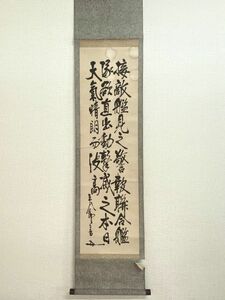 接敵艦見之警報聯合艦
隊欲直出動撃滅之本日
天氣晴朗而波高